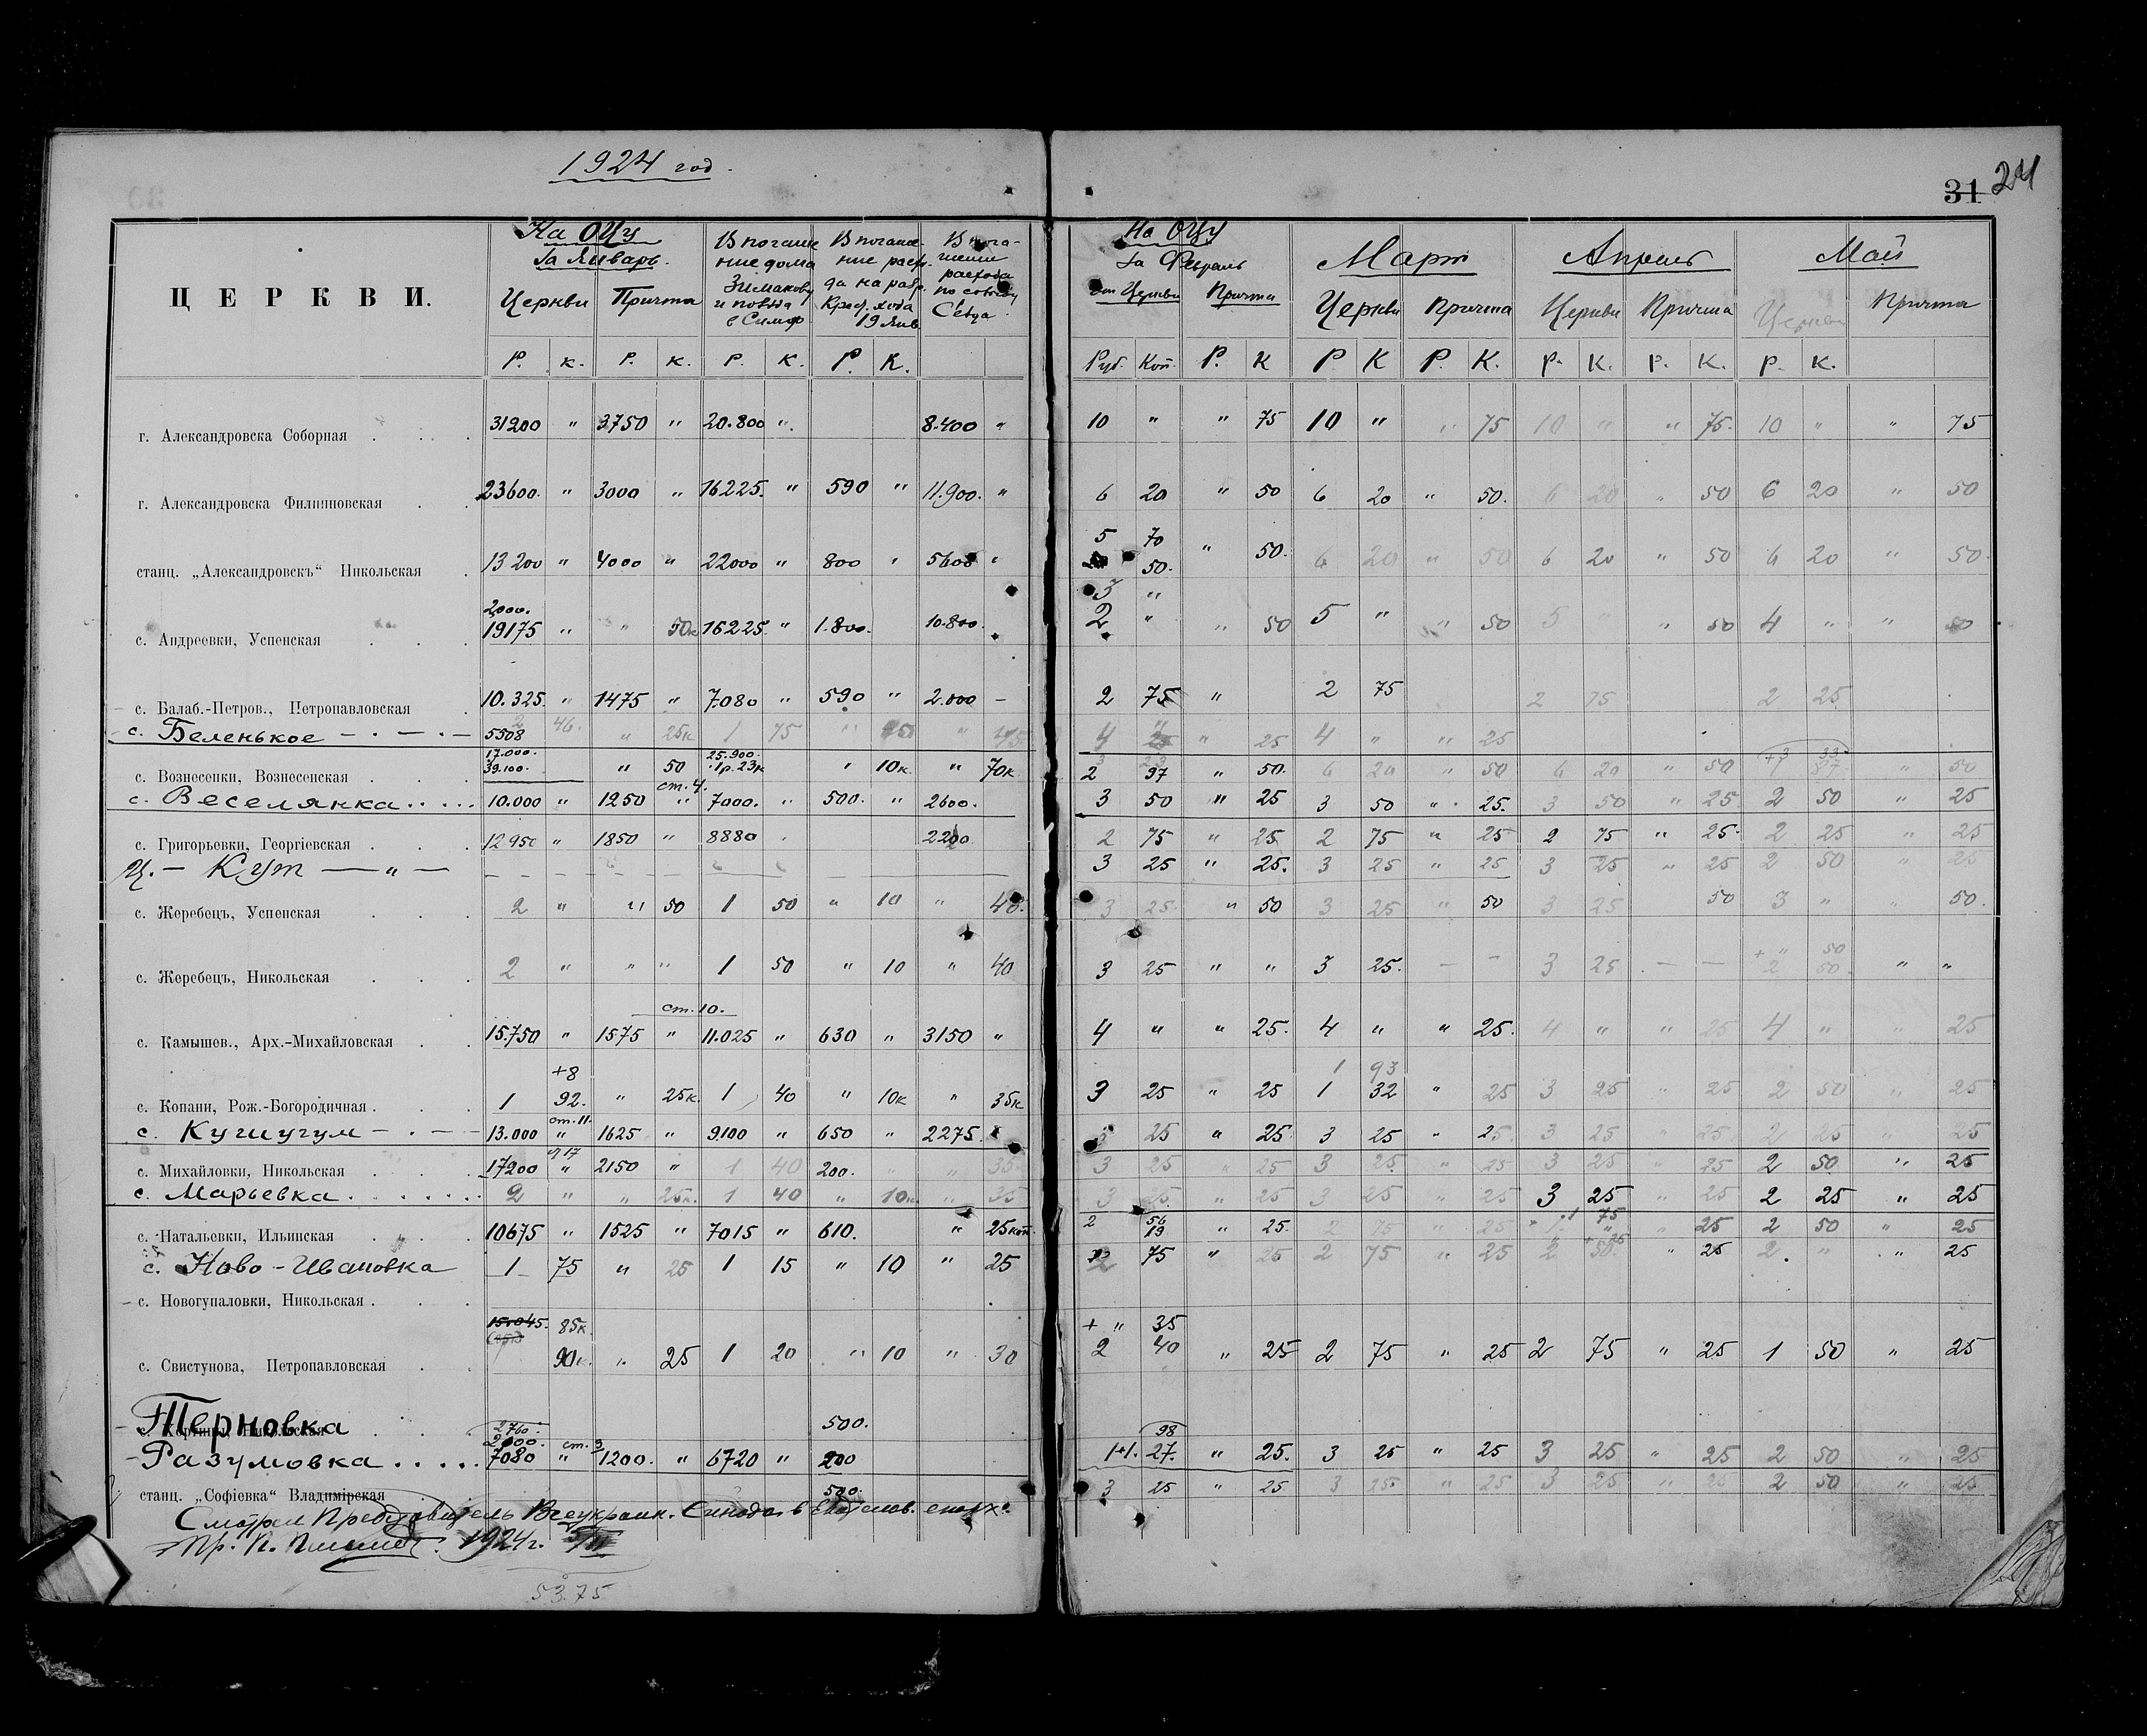 1924 год.
31 24
ЦЕРКВИ.
На ОЦУ за Январь.
Церкви Причта
В погаше ние дома и повада в Симф
В погаше- ние расх. да на
19 Янв.
расхода
На ОЦУ за Февраль
от Церкви Причта
Март
Церкви Причта
Апрель
Церкви Причта
Май
Церкви Причта
Р. к. Р. к. Р. К. Р. К. Руб. Коп. Р. К Р К Р. К. Р. К. Р. К. Р. К.
г. Александровска Соборная 31200 " 3750 " 20.800 " 8.400 " 10 " " 75 10 " " 75 10 " " 75. 10 " " 75
г. Александровска Филипповская 23600. " 3000 " 16225. " 590 " 11.900. " 6 20 " 50 6 20 " 50. 6 20 " 50 6 20 " 50
5 70
станц. „Александровскъ“ Никольская 13200 " 4000 " 22000 " 800 " 5600 " 50. " 50. 6 20 " 50 6 20 " 50 6 20 " 50.
2000. 3 "
с. Андреевки, Успенская 19175 " " 50к 16225 " 1.800. 10.800. 2 " " 50 5 " " 50 5 " " 50 4 " " 50
с. Балаб.-Петров., Петропавловская 10.325. " 1475 " 7.080 " 590 " 2.000 — 2 75 " 2 75 2 75 2 25
с. Беленькое 5508 46. " 25к 1 75 " " 4 " 25 4 " " 25
17.000. 25.900.
с. Вознесенки, Вознесенская 39.100. " 50 1р.23к " 10к. " 70к 2 97 " 50. 6 20 " 50 6 20 " 50 " 50
ст. 4.
с. Веселянка 10.000 " 1250 " 7000. " 500. " 2600. 3 50 " 25 3 50 " 25. 3 50 " 25. 2 50 " 25
с. Григорьевки, Георгіевская 12950 " 1850 " 8880 " 2200 2 75 " 25 2 75 " 25 2 75 " 25. 2 25 " 25
Ц. — Кут — " — 3 25 " 25. 3 25 " 25 3 25 " 25 2 50 " 25
с. Жеребецъ, Успенская 2 " " 50 1 50 " 10 " 40. 3 25. " 50 3 25 " 50 3 25 50 3 " " 50.
+ " 50
с. Жеребецъ, Никольская 2 " " " 1 50 " 10 " 40 3 25 " " 3 25. — — 3 25 — — 2 50. " "
ст. 10.
с. Камышев., Арх.-Михайловская 15.750 " 1575 " 11.025 " 630 " 3150 " 4 " " 25. 4 " " 25. 4 " " 25 4 " " 25
+8 1 93
с. Копани, Рож.-Богородичная 1 92. " 25к. 1 40 " 10к " 35к 3 25 " 25 1 32 " 25 3 25 " 25 2 50 " 25
ст. 11.
с. Кушугум 13.000 " 1625 " 9.100 " 650 " 2275. 3 25 " 25. 3 25 " 25. 3 25 " 25 2 25 " 25
с. Михайловки, Никольская 17200 " 2150 " 1 40 200. " " 35 3 25 " 25 3 25 " 25 3 25 " 25 2 50 " 25
с. Марьевка 2 " " 25к. 1 40 " 10к " 35 3 25 " 25 3 25 " 25 3 25 " 25 2 25 " 25
с. Натальевки, Ильинская 10675 " 1525 " 7015 " 610. " 25коп. 2 56 19 " 25. 2 75 " 25 1 75 " 25 2 50 " 25
с. Ново-Ивановка 1 75 " 25 1 15 " 10 " 25 2 75 " 25 2 75 " 25 2 50. " 25 2 " " 25
с. Новогупаловки, Никольская
15.045. 85к. + " 35
с. Свистунова, Петропавловская 90к. " 25 1 20 " 10 " 30 2 40 " 25 2 75 " 25 2 75 " 25 1 50 " 25
Терновка 500.
2760. 98
2000. ст. 3
Разумовка 7080 " 1200. " 6720 " 200 1+1. 27. " 25. 3 25 " 25 3 25 " 25 2 50 " 25
станц. „Софіевка“ Владимірская 500. 3 25 " 25 3 25 " 25 3 25 " 25 2 50 " 25
Смотрел Представитель Всеукраин. Синода в
Пр. П. 1924г.
53.75